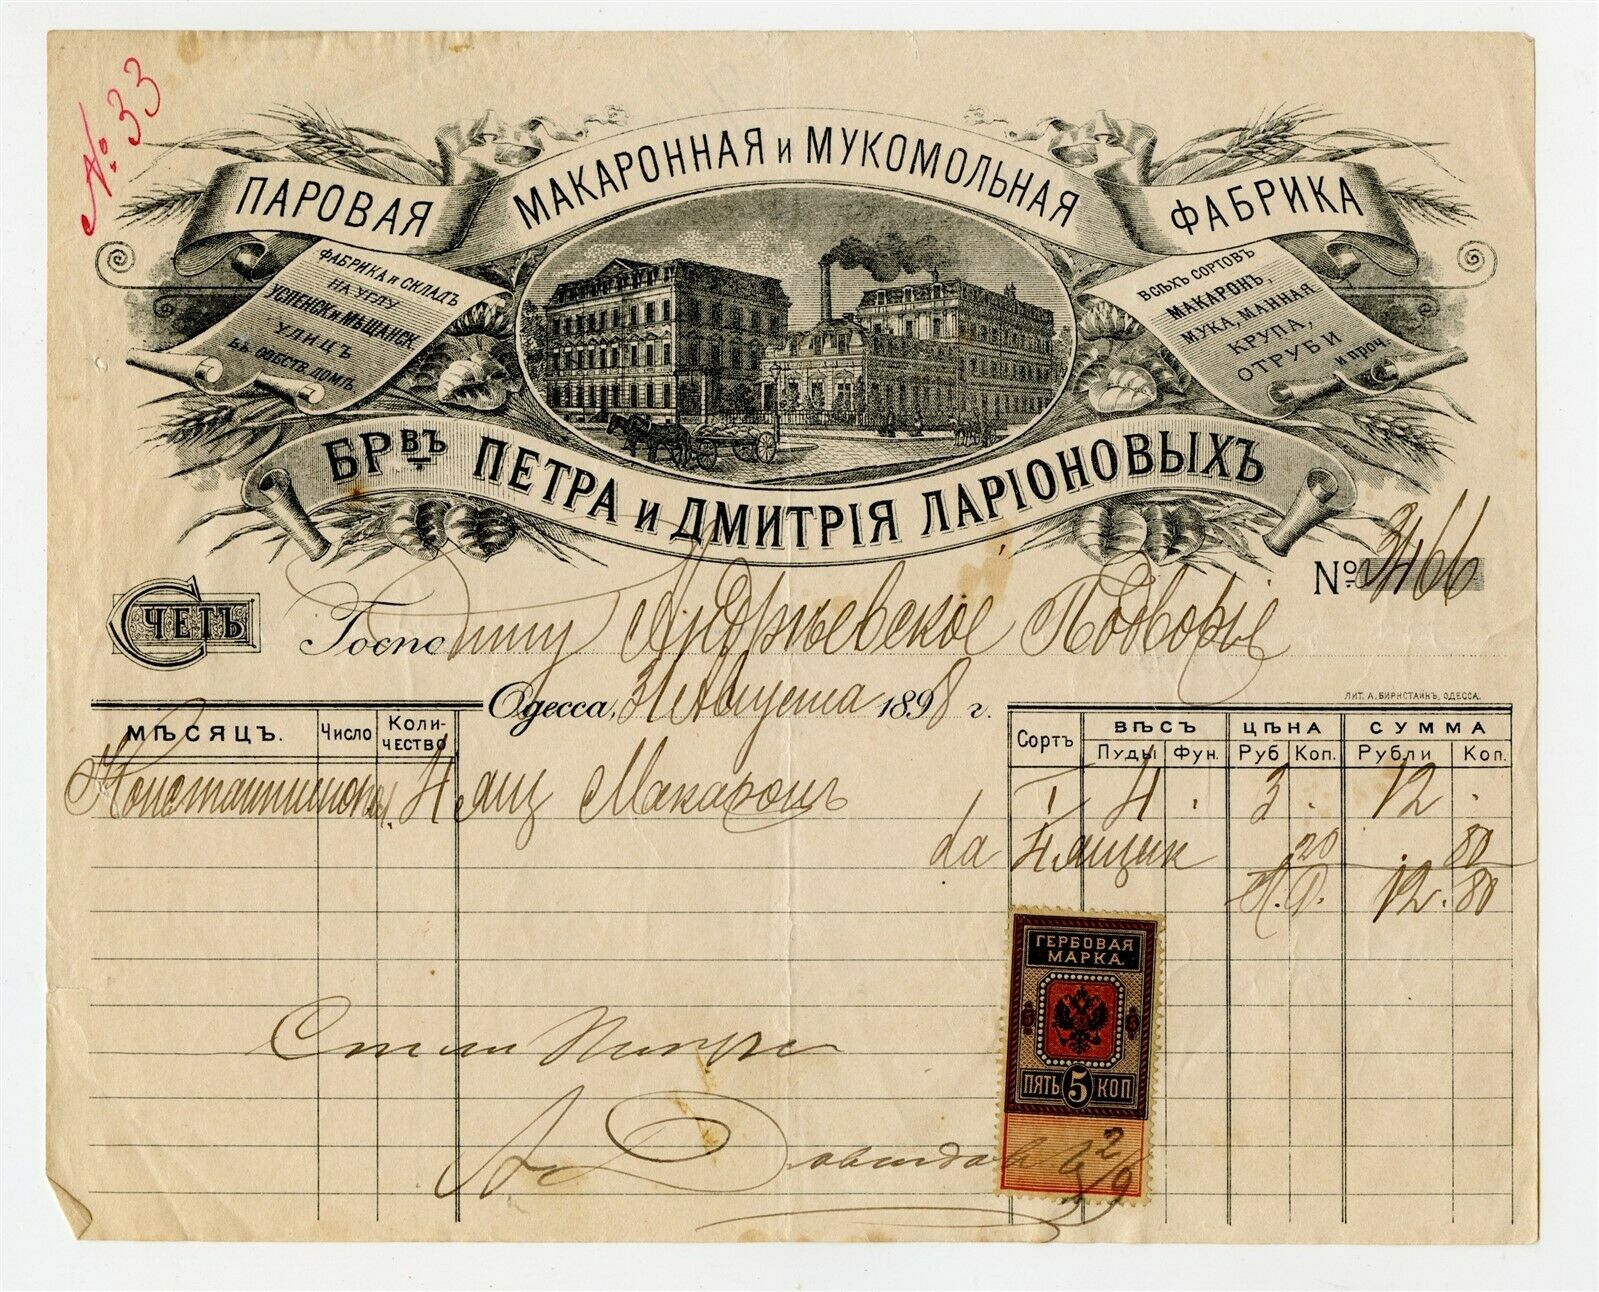 № 33
ПАРОВАЯ МАКАРОННАЯ и МУКОМОЛЬНАЯ ФАБРИКА
ФАБРИКА И СКЛАДЪ
НА УГЛУ
УСПЕНСК. И МѢЩАНСК.
УЛИЦЪ
ВЪ СОБСТВ. ДОМѢ
ВСѢХЪ СОРТОВЪ
МАКАРОНЪ,
МУКА, МАННАЯ
КРУПА,
ОТРУБИ
И ПРОЧ.
БРВЪ ПЕТРА И ДМИТРІЯ ЛАРІОНОВЫХЪ
№ 3466
СЧЕТЪ
Господину Андреевское Подворье
Одесса, 31 Августа 1898 г.
ЛИТ. А. БИРНСТАЙНЪ, ОДЕССА.
МѢСЯЦЪ. Число Коли-чество Сортъ ВѢСЪ ЦѢНА СУММА
Пуды Фун. Руб Коп. Рубли Коп.
4 ящ Макаронъ I 4 . 3 . 12 .
за 4 ящик 20 . 80
12. 80
ГЕРБОВАЯ
МАРКА.
5 5
ПЯТЬ 5 КОП
2/9